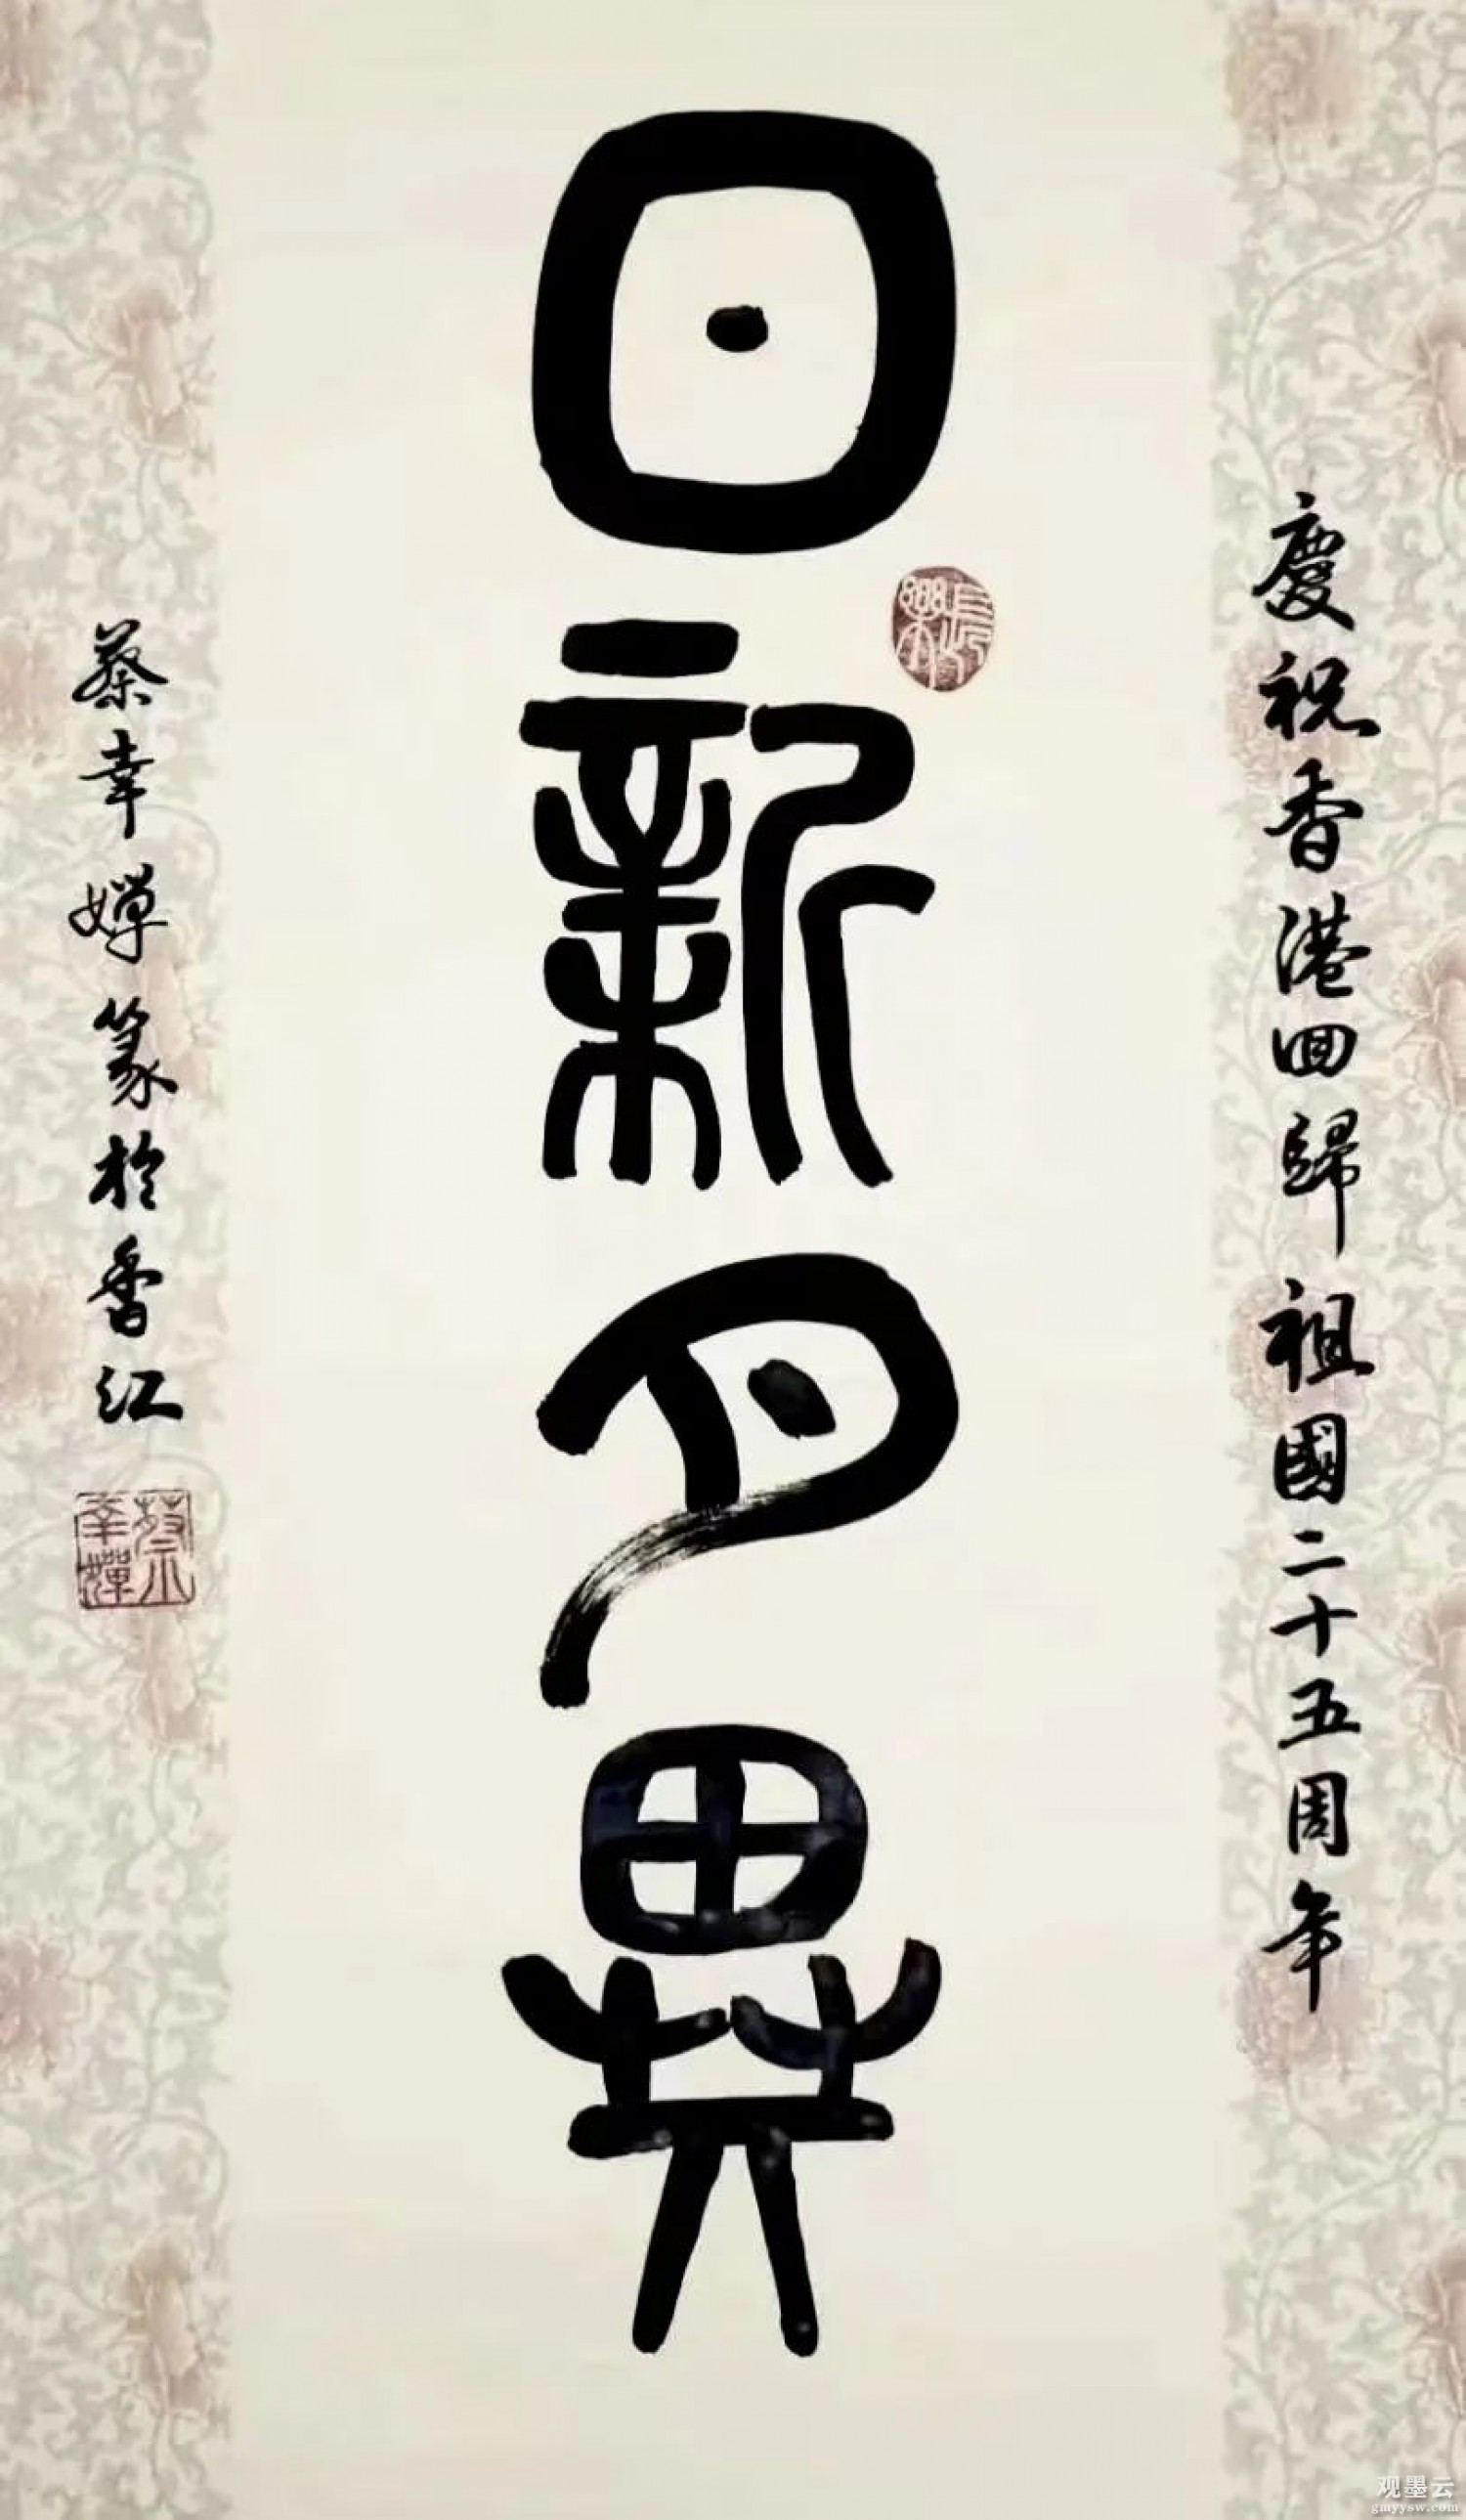 慶祝香港回歸祖國二十五周年
日新月異
長樂
蔡幸嬋篆於香江
蔡幸嬋
观墨云
gmyysw.com